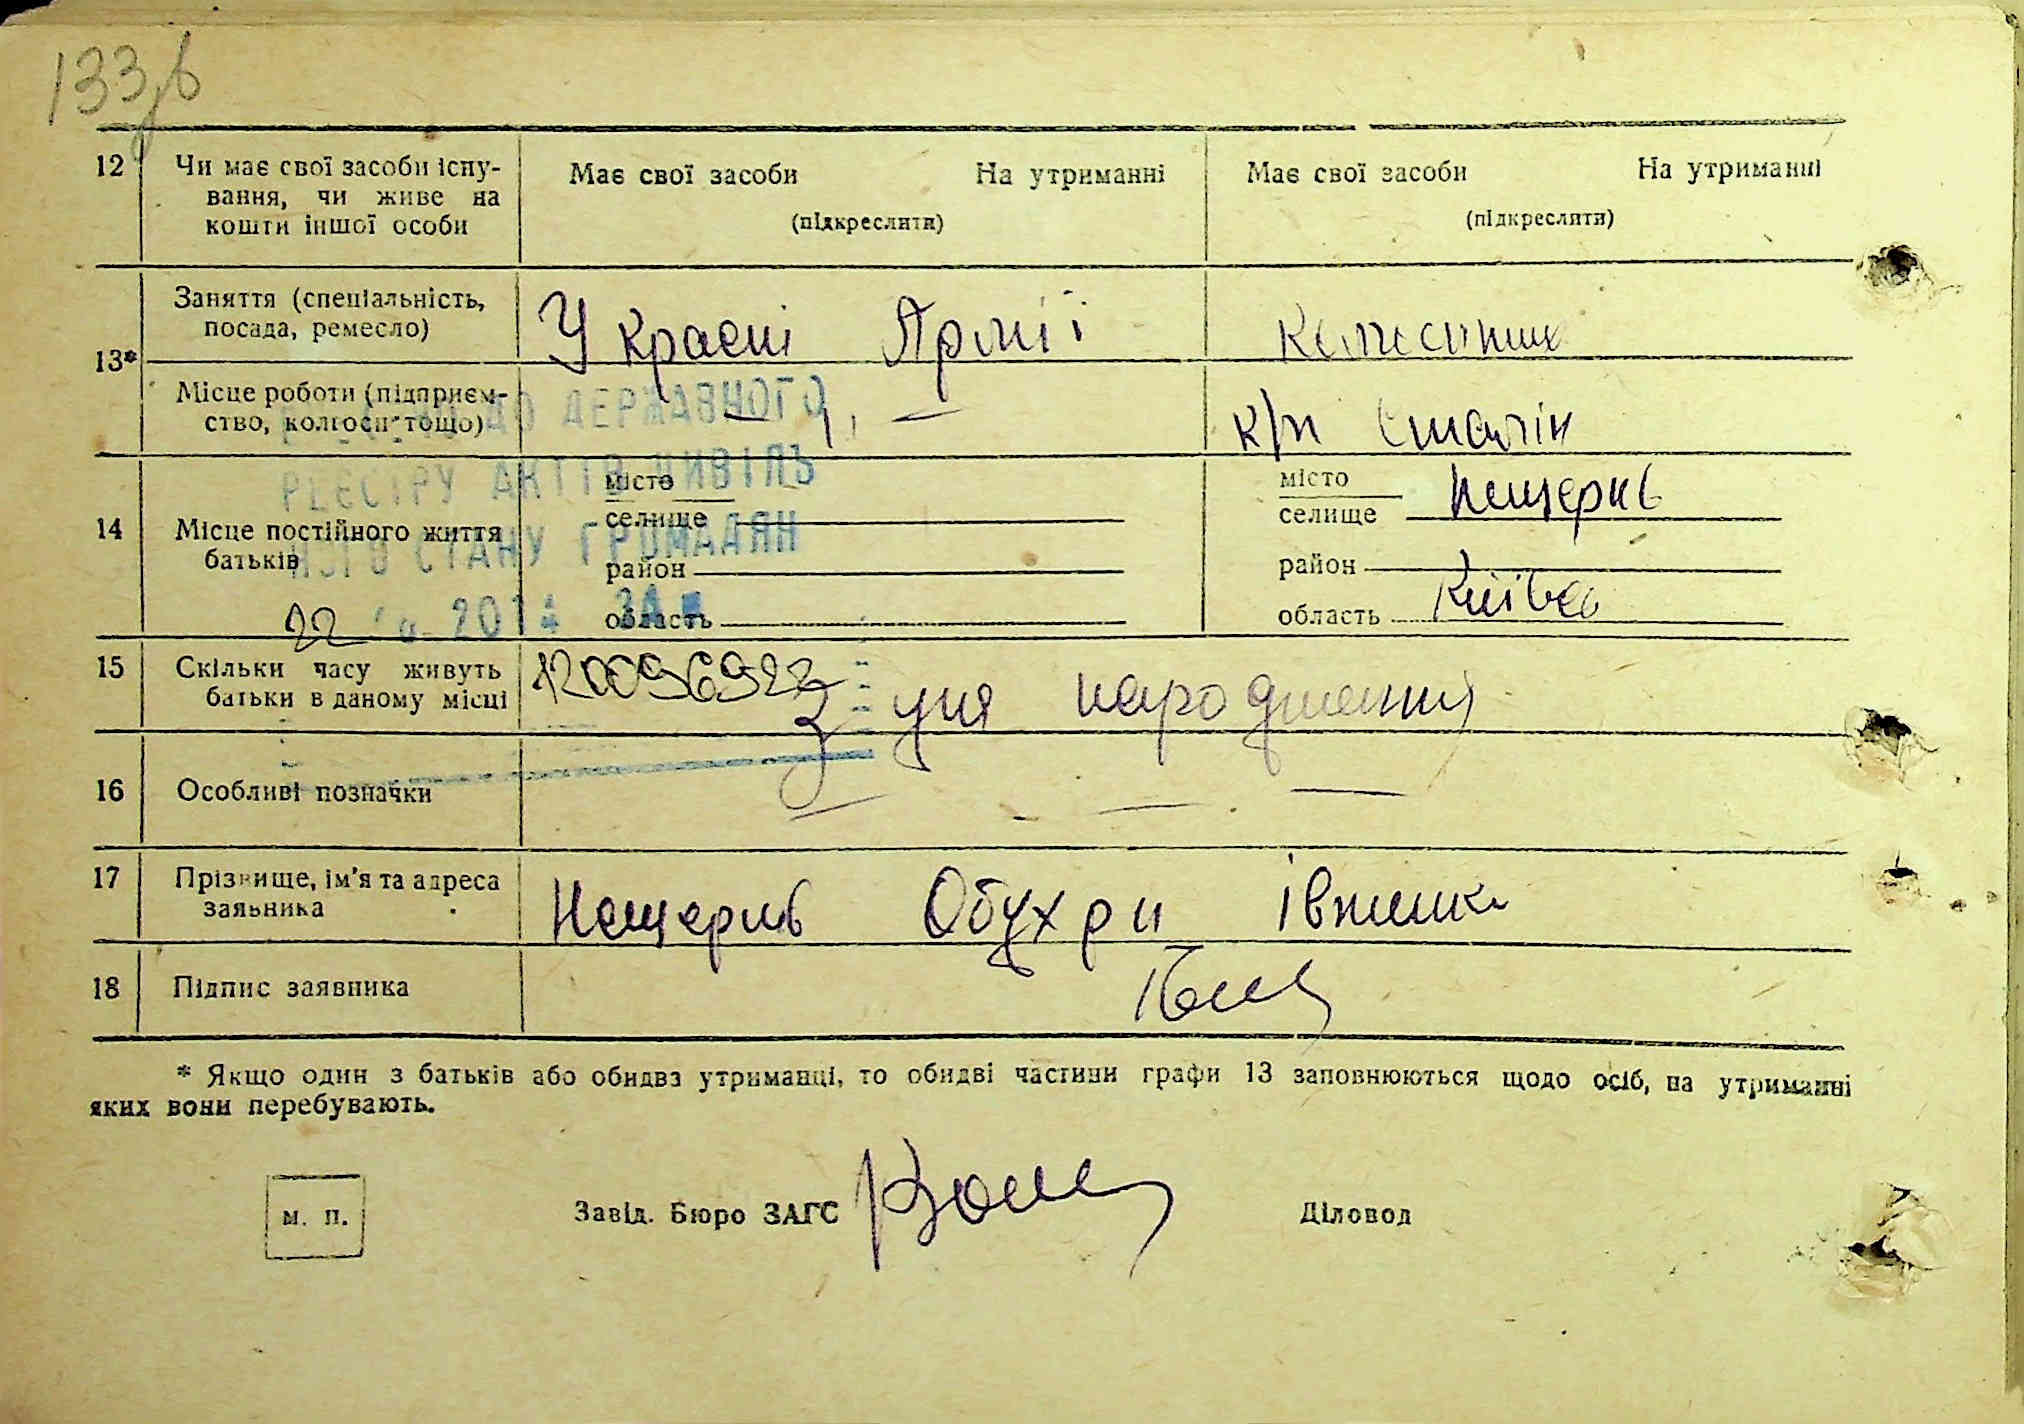 133 зв
12 Чи має свої засоби існу-
вання, чи живе на
кошти іншої особи
Має свої засоби На утриманні
(підкреслити)
Має свої засоби На утриманні
(підкреслити)
13* Заняття (спеціальність,
посада, ремесло)
У Красні Армії
Місце роботи (підприєм-
ство, колгосп тощо)
— „ —
к/п Сталін
14 Місце постійного життя
батьків
місто
селище
район
область
місто
селище Нещерів
район
область Київсь
ДО ДЕРЖАВНОГО
РЕЄСТРУ АКТІВ ЦИВІЛЬ
НОГО СТАНУ ГРОМАДЯН
22 2014 ЗА №
15 Скільки часу живуть
батьки в даному місці
12009692
З дня народження
16 Особливі позначки
— — —
17 Прізвище, ім'я та адреса
заявника
Нещерів Обухри
18 Підпис заявника
* Якщо один з батьків або обидва утриманці, то обидві частини графи 13 заповнюються щодо осіб, на утриманні
яких вони перебувають.
м. п.
Завід. Бюро ЗАГС
Діловод